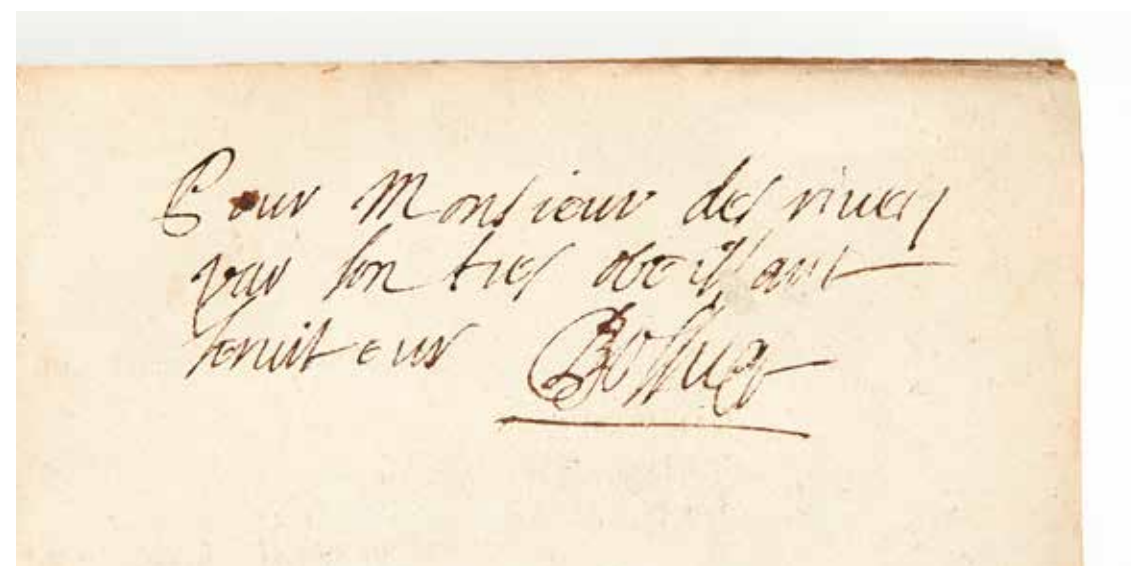 Pour Monsieur des riuers
par son tres obeissant
seruiteur Bossuet